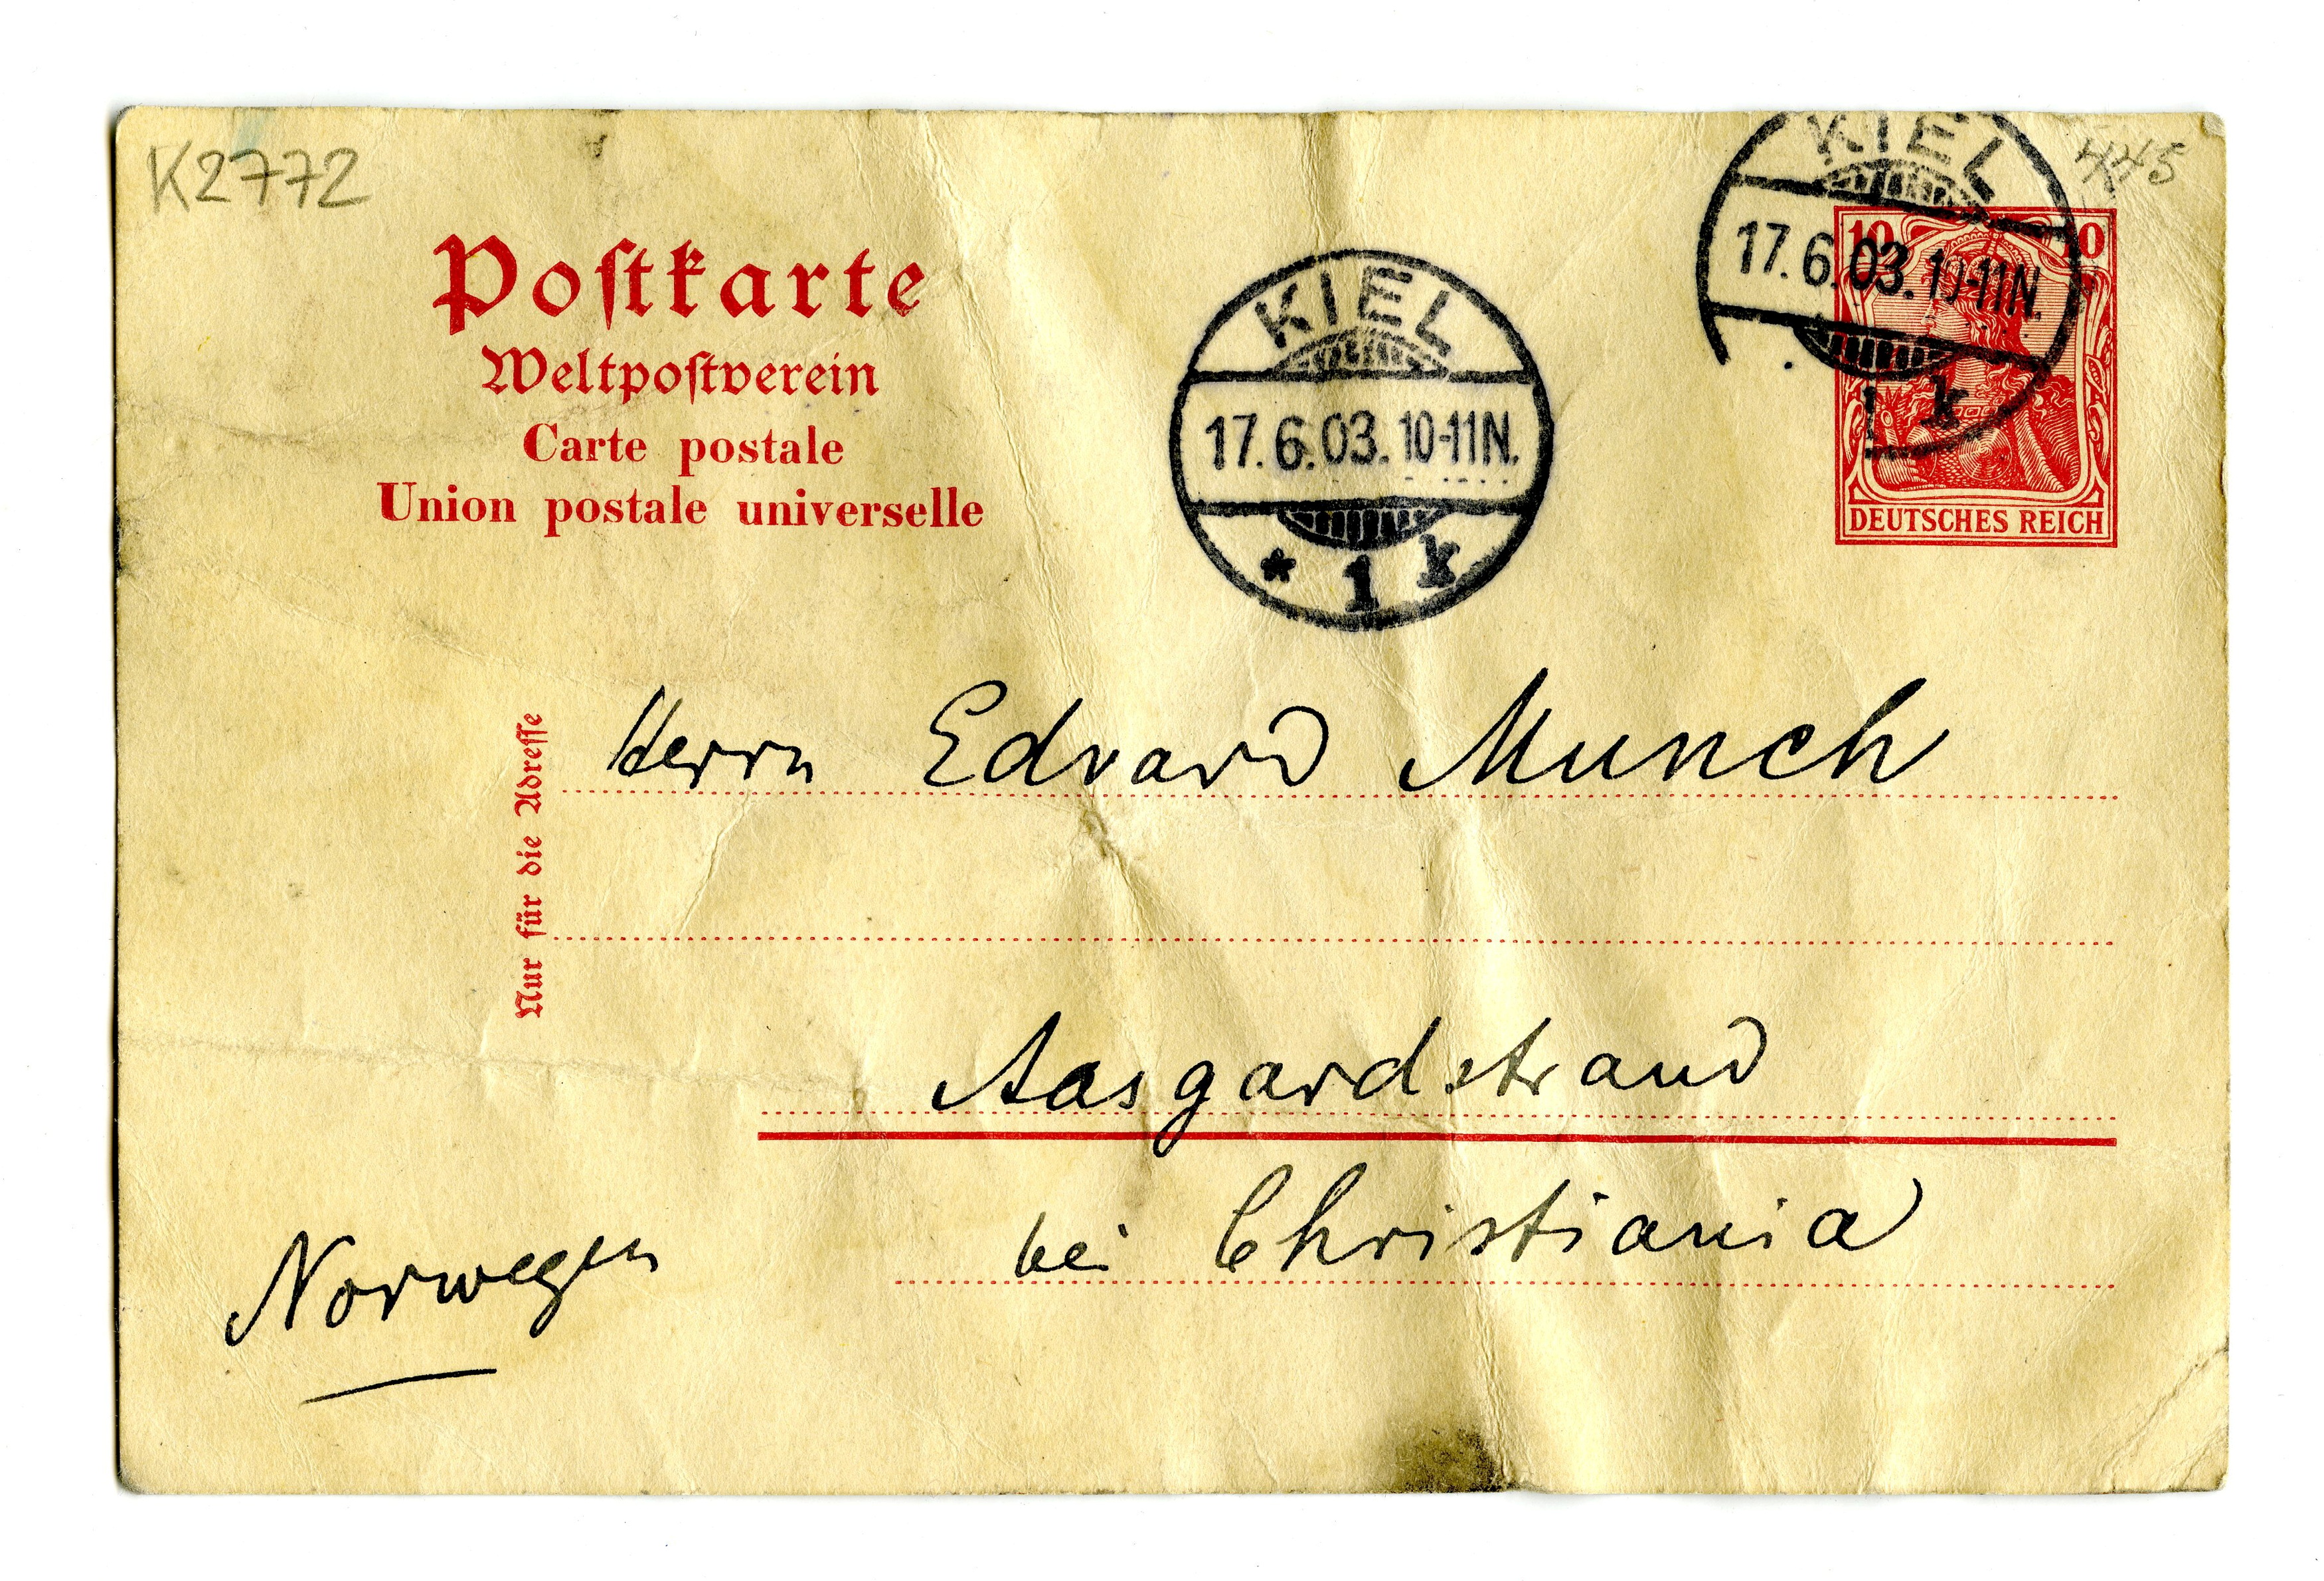 K2772
445
Postkarte
Weltpostverein
Carte postale
Union postale universelle
KIEL
17.6.03.10-11N.
* 1 k
KIEL
17.6.03.10-11N.
1 k
10 10
DEUTSCHES REICH
Nur für die Adresse
Herrn Edvard Munch
Aasgardstrand
bei Christiania
Norwegen